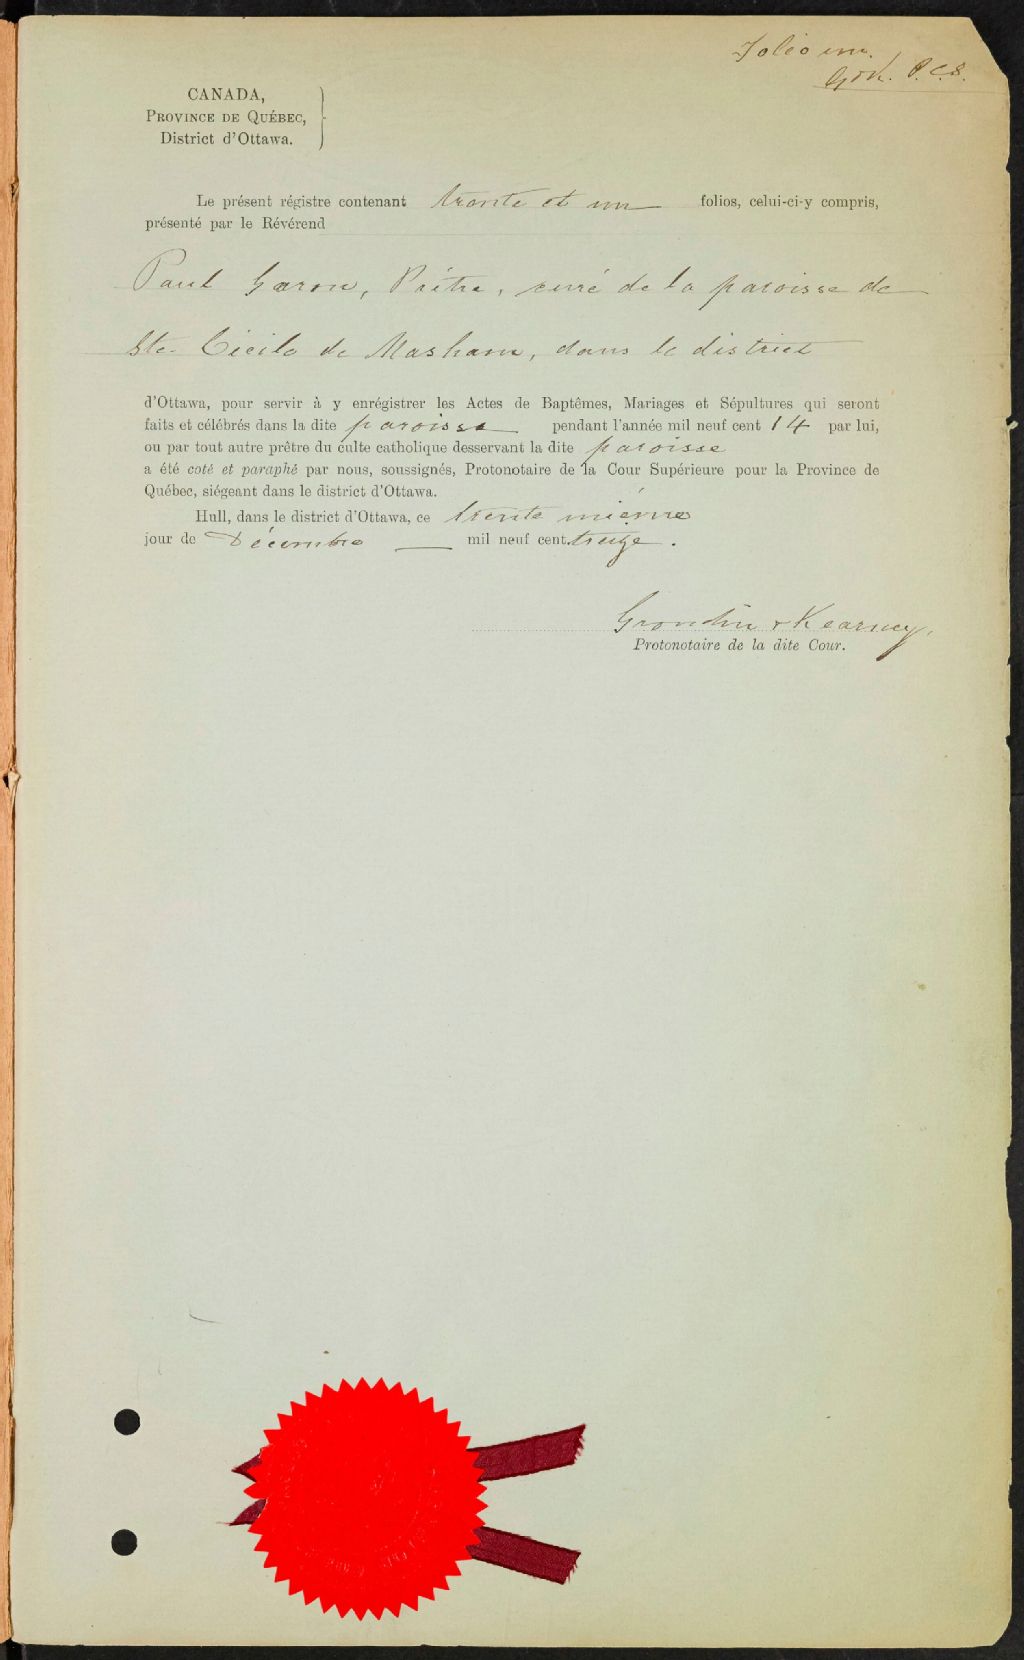 Folio un.
G&K. P.C.S.
CANADA,
PROVINCE DE QUÉBEC,
District d'Ottawa.
Le présent régistre contenant trente et un folios, celui-ci-y compris,
présenté par le Révérend
Paul Garon, Prêtre, curé de la paroisse de
Ste. Cécile de Masham, dans le district
d'Ottawa, pour servir à y enrégistrer les Actes de Baptêmes, Mariages et Sépultures qui seront
faits et célébrés dans la dite paroisse pendant l'année mil neuf cent 14 par lui,
ou par tout autre prêtre du culte catholique desservant la dite paroisse
a été coté et paraphé par nous, soussignés, Protonotaire de la Cour Supérieure pour la Province de
Québec, siégeant dans le district d'Ottawa.
Hull, dans le district d'Ottawa, ce trente mième
jour de Décembre mil neuf cent treize.
Grondin & Kearney,
Protonotaire de la dite Cour.